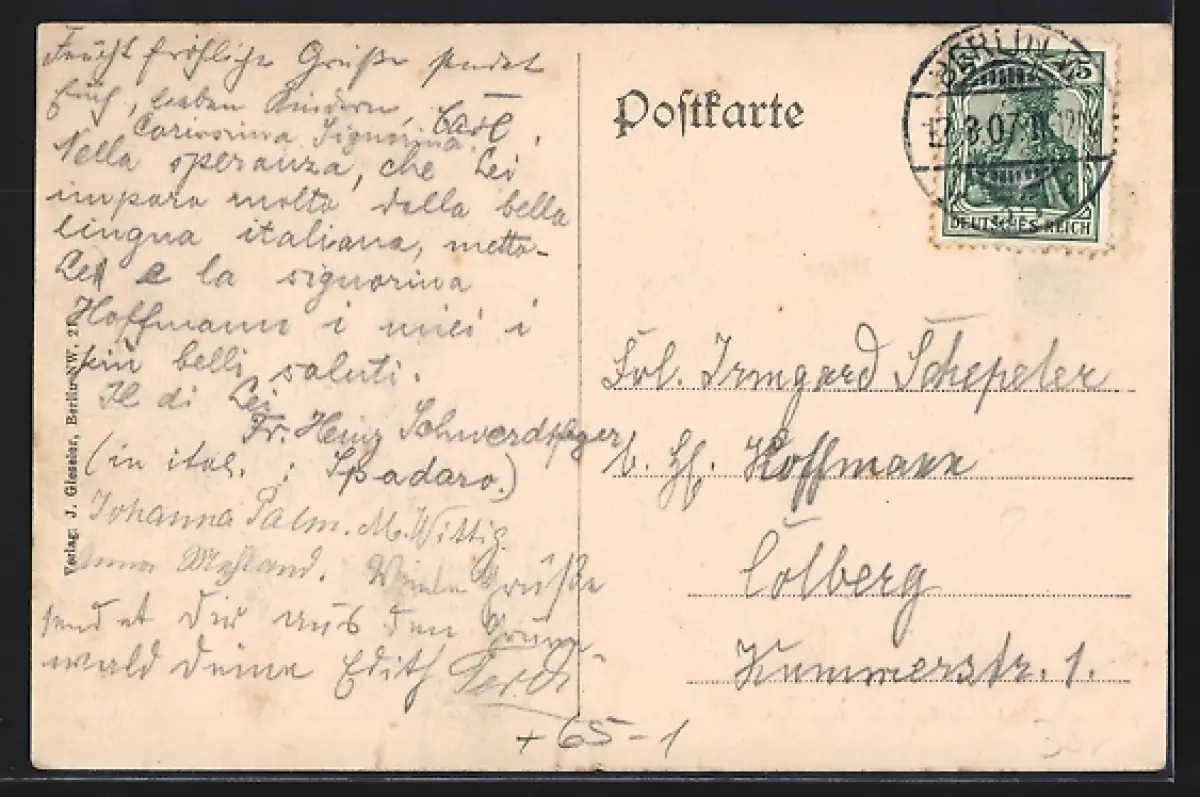 Feucht fröhliche Grüße sendet
Euch, lieben Kindern, Carl.
Carissima Signorina,
Nella speranza, che Lei
impara molto della bella
lingua italiana, metto
Lei e la signorina
Hoffmann i miei i
più belli saluti.
Il di Lei
Fr. Heinz Schwerdtfeger
(in ital. : Spadaro.)
Johanna Palm. M. Wittig.
Anna. Viele Grüße
sendet dir aus dem Grune-
wald deine Edith
+65-1
Verlag: J. Gieseler, Berlin NW. 21
Postkarte
BERLIN
12.8.07
5
DEUTSCHES REICH
Frl. Irmgard Schepeler
b. Hoffmann
Colberg
Kummerstr. 1.